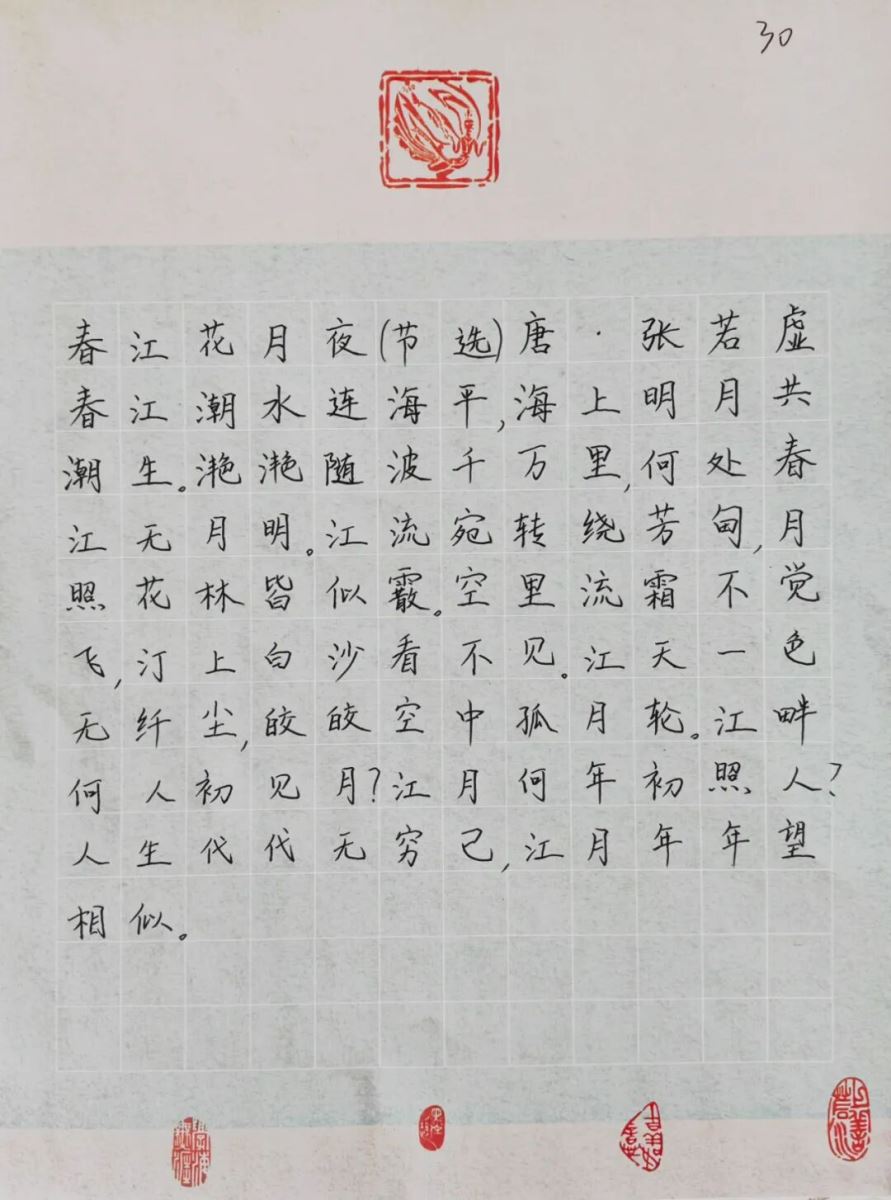 30
春江花月夜(节选)唐·张若虚
春江潮水连海平,海上明月共
潮生。滟滟随波千万里,何处春
江无月明。江流宛转绕芳甸,月
照花林皆似霰。空里流霜不觉
飞,汀上白沙看不见。江天一色
无纤尘,皎皎空中孤月轮。江畔
何人初见月?江月何年初照人?
人生代代无穷已,江月年年望
相似。